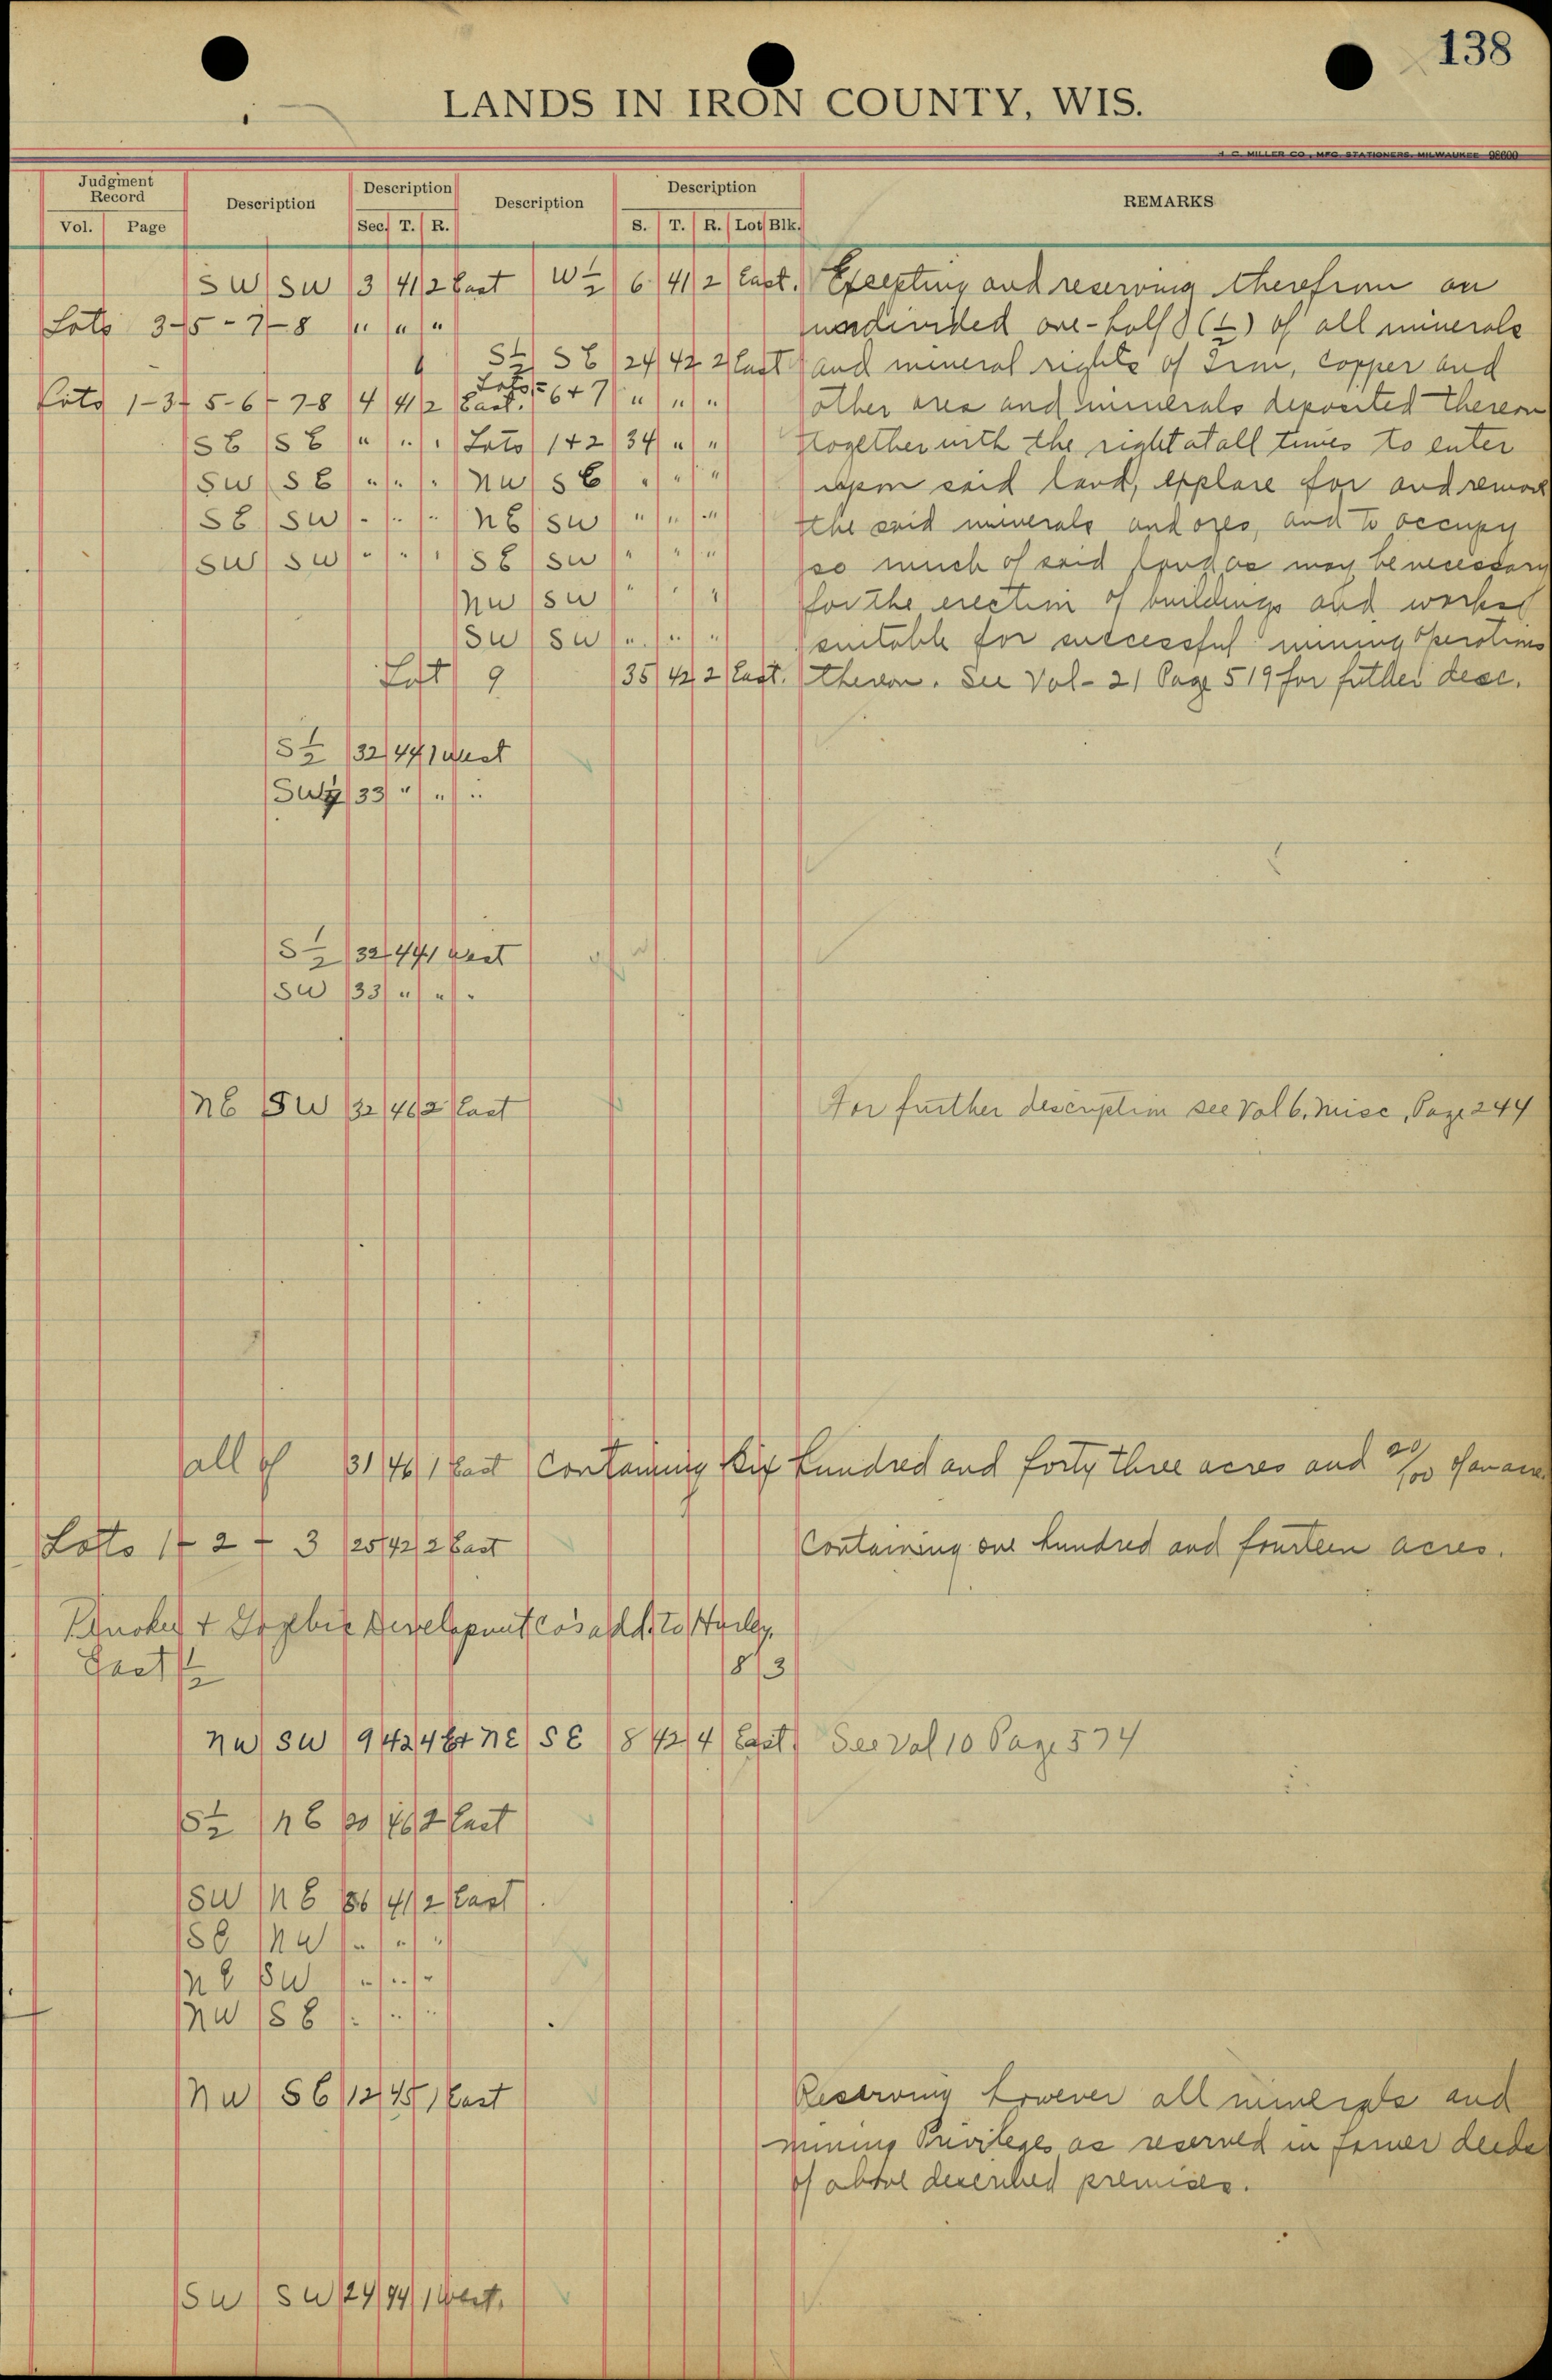 138
LANDS IN IRON COUNTY, WIS.
H. C. MILLER CO., MFG. STATIONERS, MILWAUKEE 98600
Judgment Record Description Description Description Description REMARKS
Vol. Page Sec. T. R. S. T. R. Lot Blk.
SW SW 3 41 2 East W 1/2 6 41 2 East. Excepting and reserving therefrom an
Lots 3-5-7-8 " " " undivided one-half (1/2) of all minerals
S 1/2 SE 24 42 2 East and mineral rights of Iron, Copper and
Lots 1-3-5-6-7-8 4 41 2 East. Lots 6+7 " " " other ores and minerals deposited thereon
SE SE " " " Lots 1+2 34 " " together with the right at all times to enter
SW SE " " " NW SE " " " upon said land, explore for and remove
SE SW " " " NE SW " " " the said minerals and ores, and to occupy
SW SW " " " SE SW " " " so much of said land as may be necessary
NW SW " " " for the erection of buildings and works
SW SW " " " suitable for successful mining operations
Lot 9 35 42 2 East. thereon. See Vol- 21 Page 519 for futher desc.
S 1/2 32 44 1 West
SW 33 " " "
S 1/2 32 44 1 West
SW 33 " " "
NE SW 32 46 2 East For further description see Vol 6. Misc, Page 244
all of 31 46 1 East Containing Six hundred and forty three acres and 20/100 of an acre.
Lots 1 + 2 + 3 25 42 2 East Containing one hundred and fourteen acres.
+ Gogebic Development Co's add. to Hurley.
East 1/2 8 3
NW SW 9 42 4 E+ NE SE 8 42 4 East See Vol 10 Page 574
S 1/2 NE 30 46 2 East
SW NE 36 41 2 East
SE NW " " "
NE SW " " "
NW SE " " "
NW SE 12 45 1 East Reserving however all minerals and
mining Privileges as reserved in former deeds
of above described premises.
SW SW 24 44 1 West.